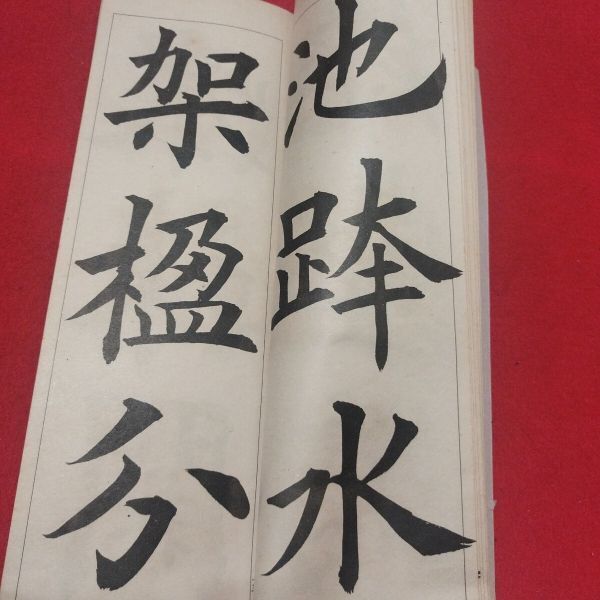 池跨水
架楹分